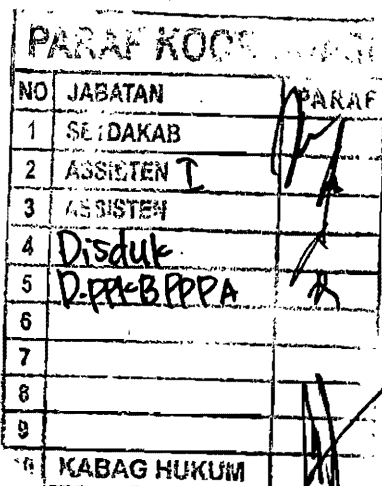 PARAF KOORDINASI
NO JABATAN PARAF
1 SETDAKAB
2 ASSISTEN I
3 ASSISTEN
4 Disduk
5 D.PPKBPPPA
6
7
8
9
10 KABAG HUKUM